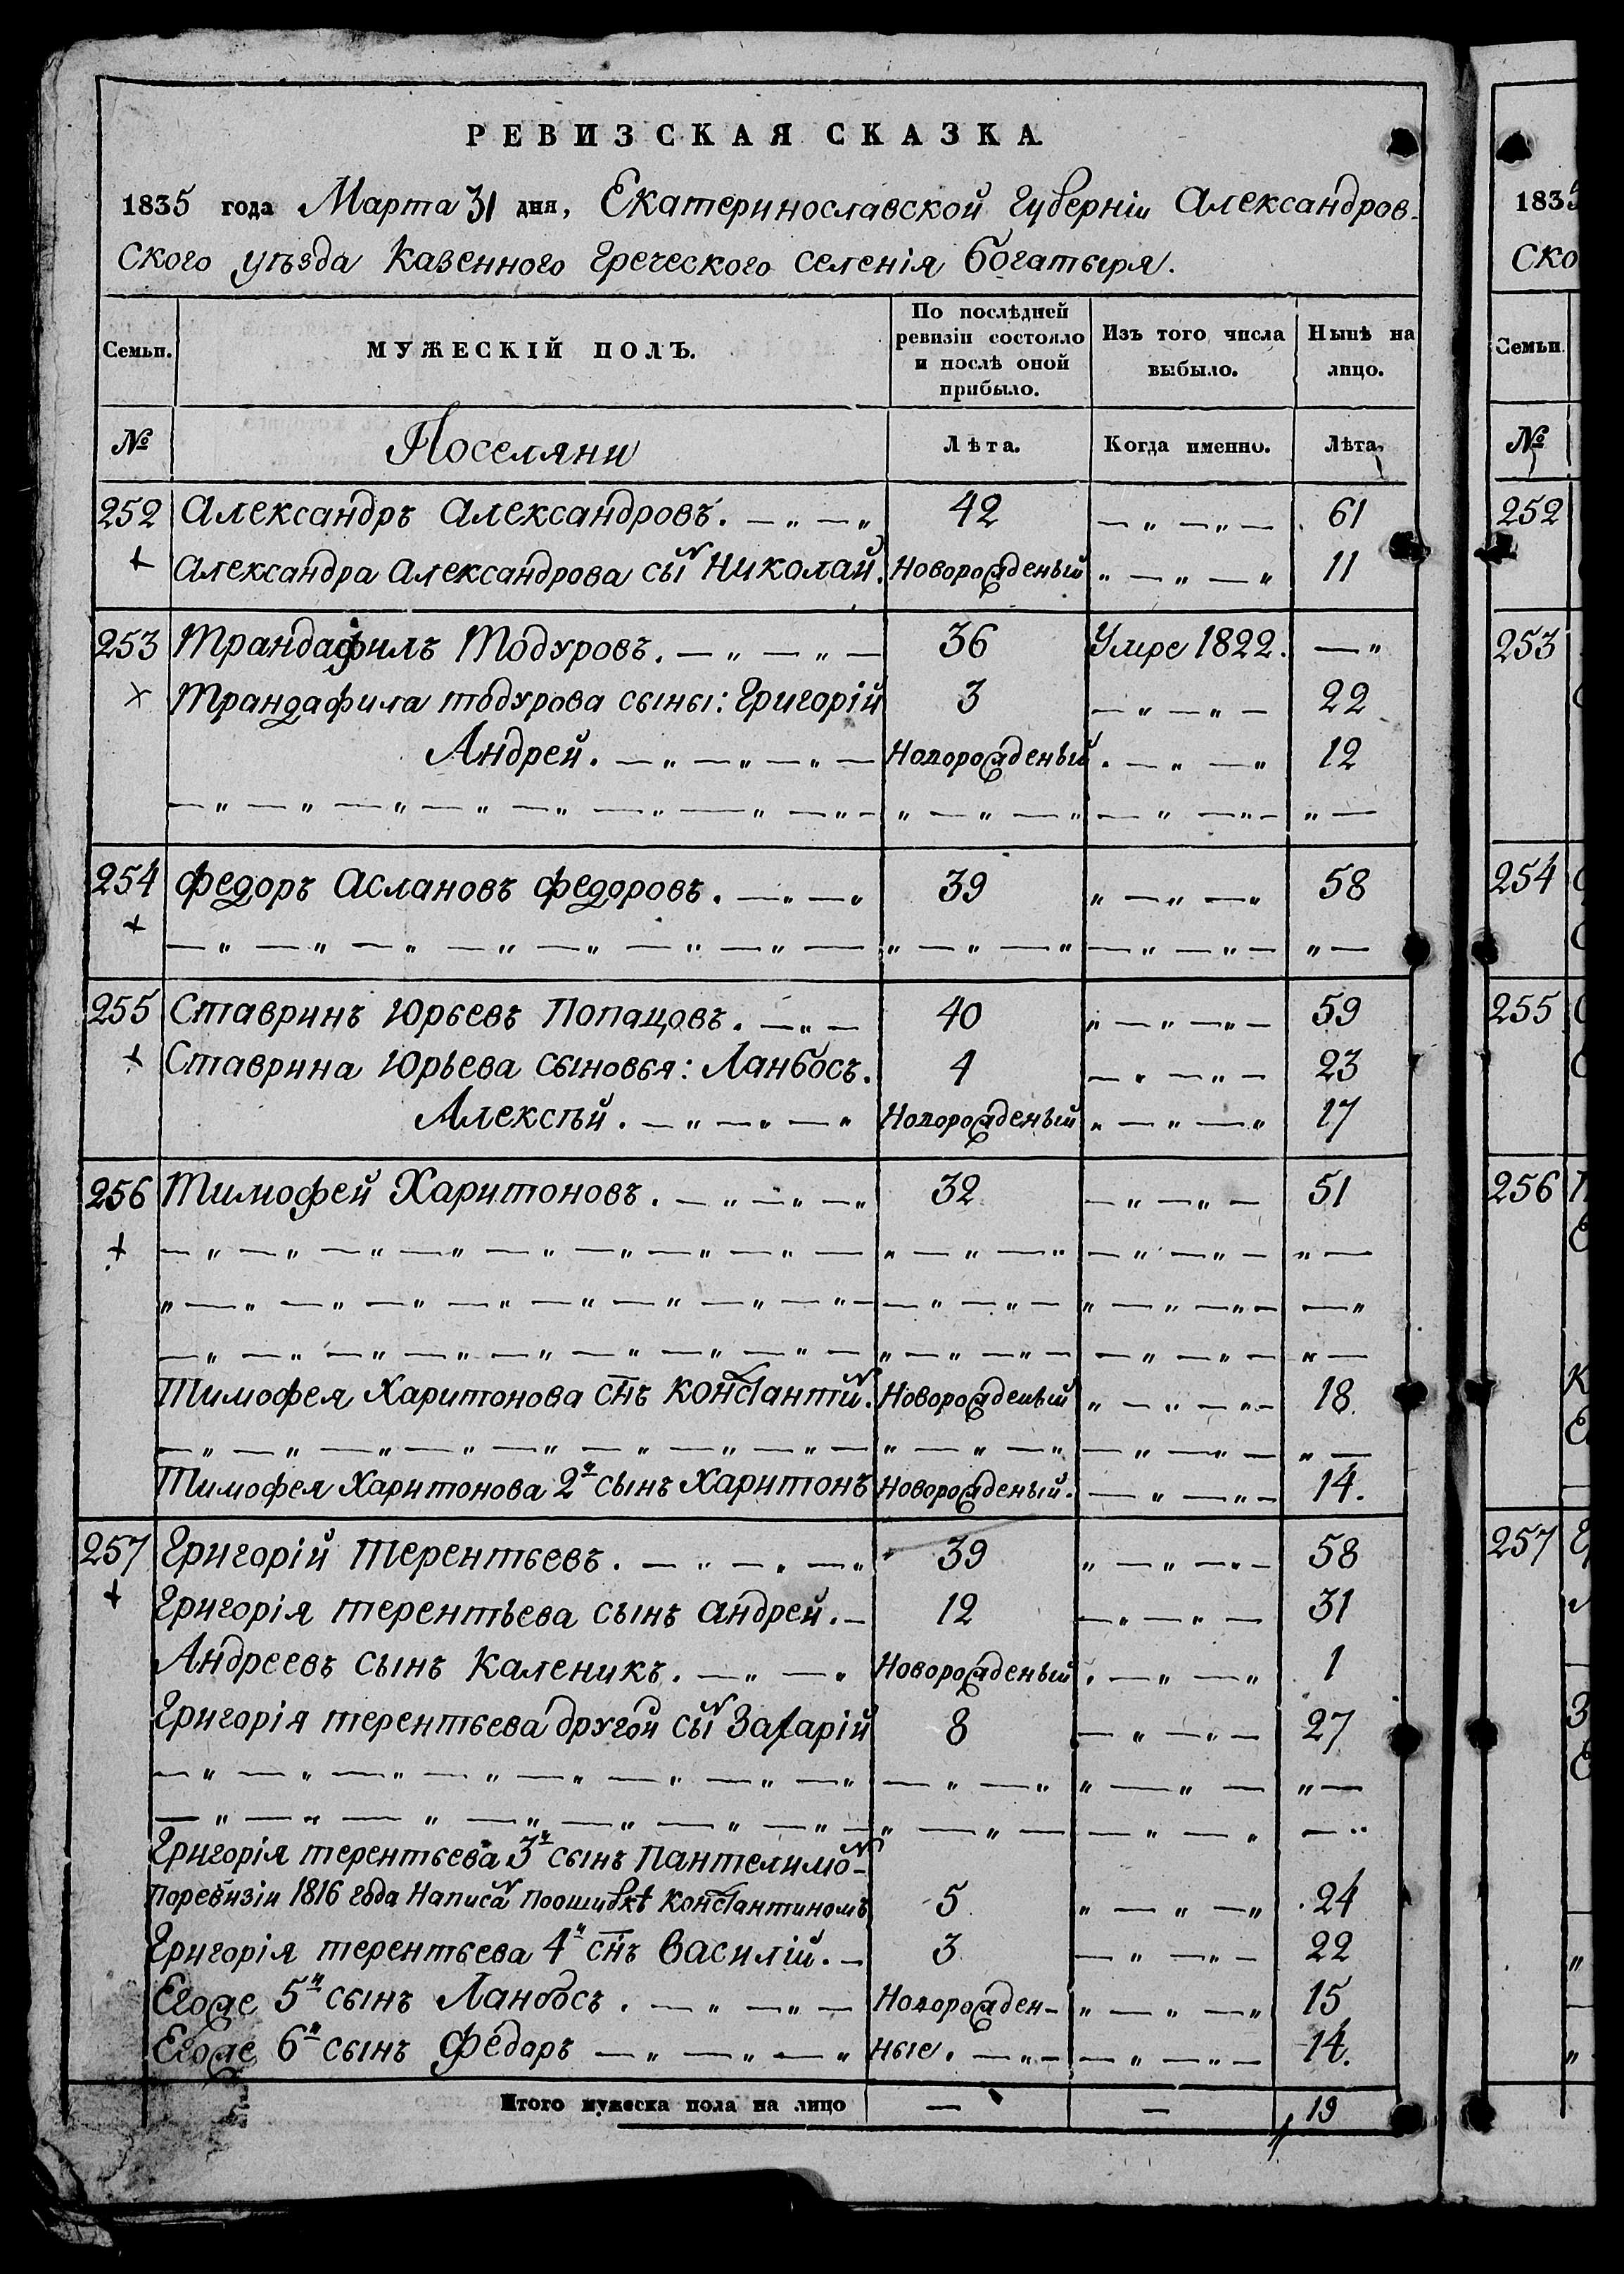 РЕВИЗСКАЯ СКАЗКА
1835 года Марта 31 дня, Екатеринославской Губерніи Александров-
ского уѣзда Казенного Греческого селенія Богатыря.
Семьи. МУЖЕСКІЙ ПОЛЪ. По послѣдней ревизіи состояло и послѣ оной прибыло. Изъ того числа выбыло. Нынѣ на лицо.
№ Поселяни Лѣта. Когда именно. Лѣта.
252 Александръ Александровъ. 42 — „ — „ — 61
+ Александра Александрова сынъ Николай. Новорожденый „ — „ — „ 11
253 Трандафилъ Тодуровъ. 36 Умре 1822. — „
× Трандафила Тодурова сыны: Григорій 3 — „ — „ — 22
Андрей. Новорожденый. — „ — „ 12
254 Федоръ Аслановъ Федоровъ. 39 „ — „ — „ 58
+
255 Ставринъ Юрьевъ Попацовъ. 40 „ — „ — „ — 59
+ Ставрина Юрьева сыновья: Ланбосъ. 4 — „ — „ — 23
Алексѣй. Новорожденый „ — „ — „ 17
256 Тимофей Харитоновъ. 32 — „ — „ — 51
+
Тимофея Харитонова снъ Константин. Новорожденый „ — „ — „ — 18.
Тимофея Харитонова 2й сынъ Харитонъ Новорожденый. — „ — „ — 14.
257 Григорій Терентьевъ. 39 „ — „ — „ — 58
+ Григорія Терентьева сынъ Андрей. — 12 — „ — „ — 31
Андреевъ сынъ Каленикъ. Новорожденый. — „ — „ 1
Григорія Терентьева другой сын Захарій 8 — „ — „ — 27
Григорія Терентьева 3й сынъ Пантелимон
поревизіи 1816 года написан поошибкѣ Константиномъ 5 „ — „ — „ 24
Григорія Терентьева 4й снъ Василій. — 3 — „ — „ — 22
Егоже 5й сынъ Ланбосъ. Новорожден- „ — „ — „ 15
Егоже 6й сынъ Федаръ ные. — „ — — „ — „ — 14.
Итого мужеска пола на лицо — — 19
1835
ско
Семьи.
№
252
253
254
255
256
257